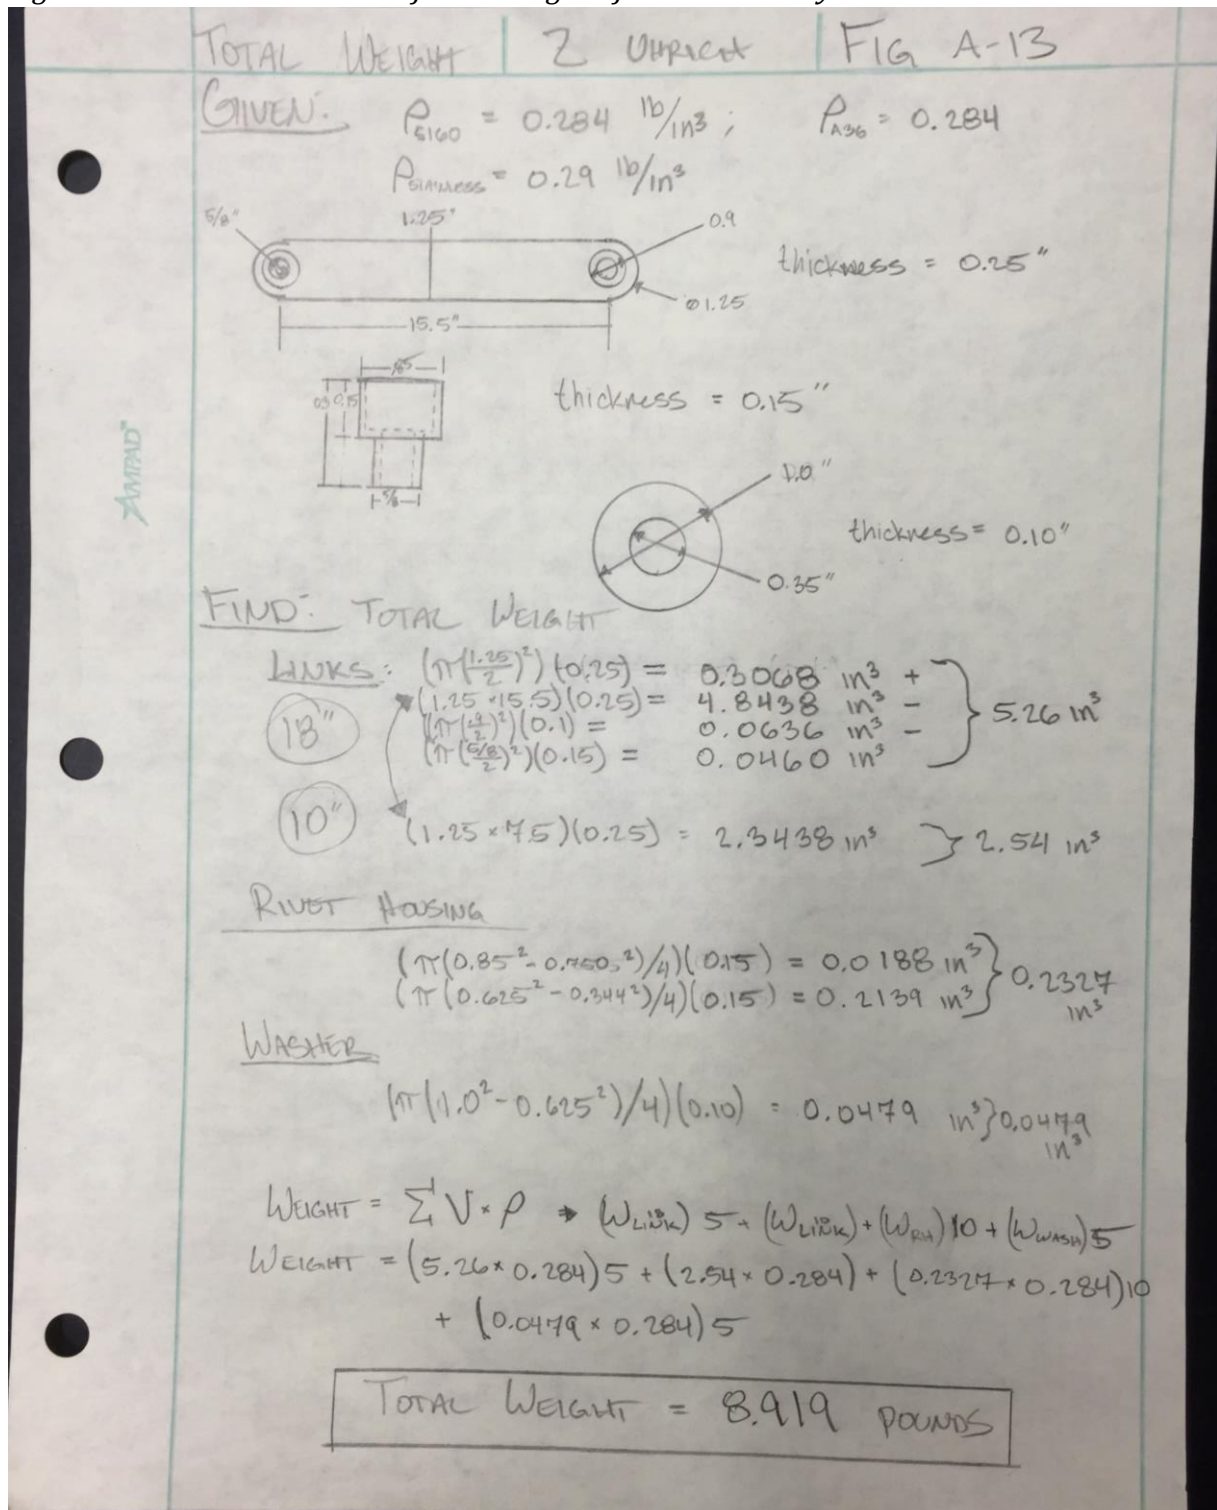 TOTAL WEIGHT | Z UHRICH | FIG A-13
GIVEN: ρ5160 = 0.284 lb/in³ ; ρA36 = 0.284
ρSTAINLESS = 0.29 lb/in³
5/8" 1.25" 0.9
thickness = 0.25"
ø1.25
15.5"
.85
0.3 0.15 thickness = 0.15"
5/8
1.0"
thickness = 0.10"
0.35"
FIND: TOTAL WEIGHT
LINKS: (π(1.25/2)²)(0.25) = 0.3068 in³ +
18" (1.25 × 15.5)(0.25) = 4.8438 in³ - } 5.26 in³
(π(.9/2)²)(0.1) = 0.0636 in³ -
(π(5/8/2)²)(0.15) = 0.0460 in³
10" (1.25 × 7.5)(0.25) = 2.3438 in³ } 2.54 in³
RIVET HOUSING
(π(0.85² - 0.750²)/4)(0.15) = 0.0188 in³ } 0.2327 in³
(π(0.625² - 0.344²)/4)(0.15) = 0.2139 in³
WASHER
(π(1.0² - 0.625²)/4)(0.10) = 0.0479 in³ } 0.0479 in³
WEIGHT = Σ V × ρ → (WLINK) 5 + (WLINK) + (WRH) 10 + (WWASH) 5
WEIGHT = (5.26 × 0.284) 5 + (2.54 × 0.284) + (0.2327 × 0.284) 10
+ (0.0479 × 0.284) 5
TOTAL WEIGHT = 8.919 POUNDS
AMPAD